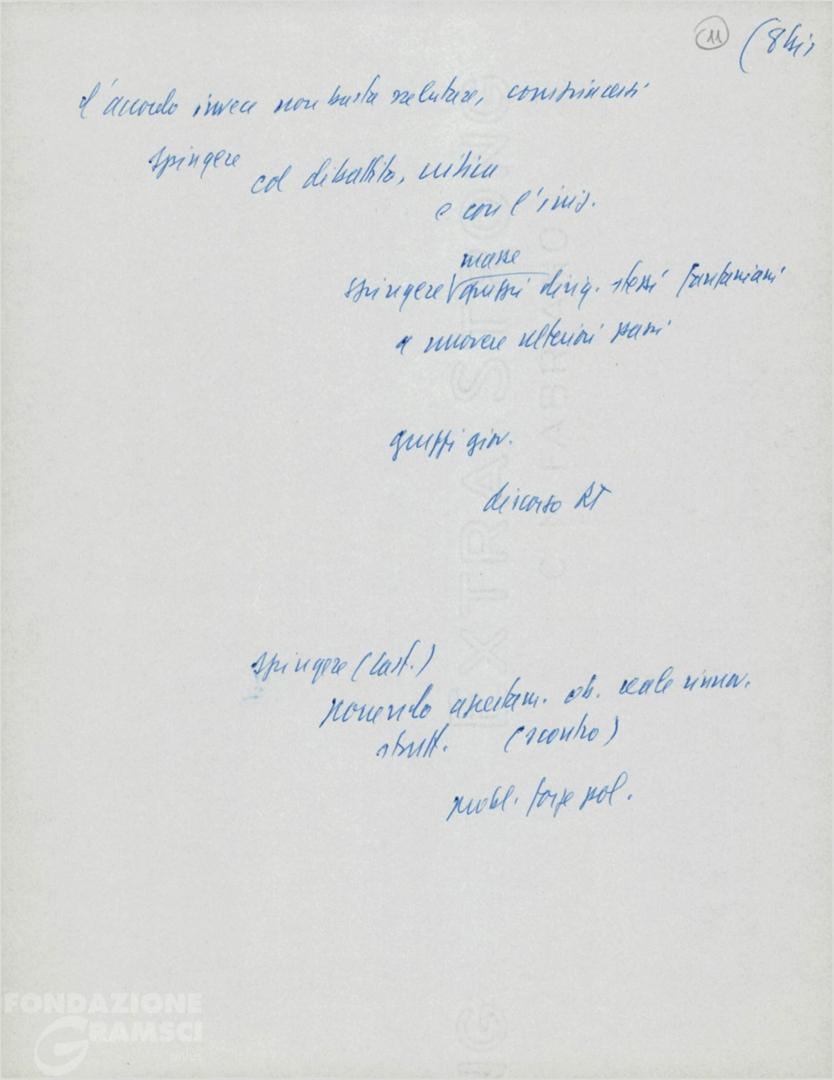 11 (8bis
d'accordo invece non basta valutare, convincersi
spingere
col dibattito, critica
e con l'iniz.
masse
spingere gruppi dirig. stessi fanfaniani
a muovere ulteriori passi
gruppi giov.
discorso RT
spingere (cast.)
ponendo apertam. ob. reale rinnov.
strutt. (scontro)
probl. forze pol.
EXTRA STRONG
FABRIANO
FONDAZIONE
GRAMSCI